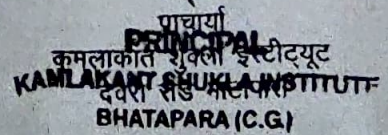 प्राचार्या
PRINCIPAL
कमलाकांत शुक्ला इंस्टीट्यूट
KAMLAKANT SHUKLA INSTITUTE
देवरी रोड भाटापारा
BHATAPARA (C.G.)